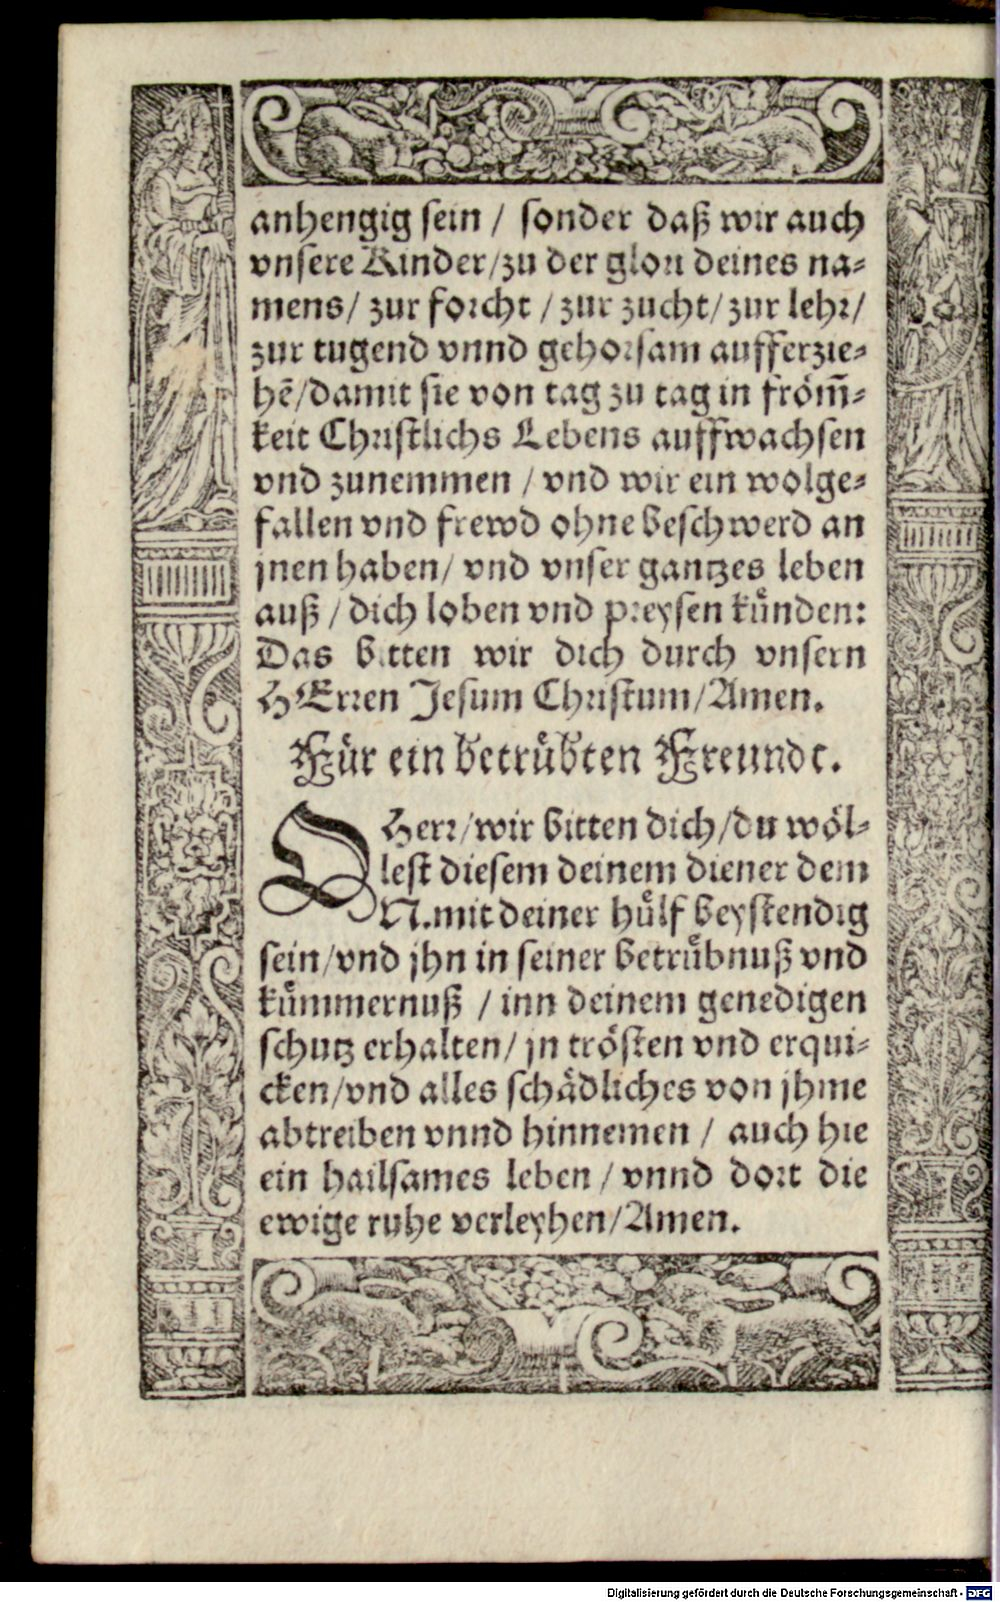 anhengig sein / sonder daß wir auch
vnsere Kinder/zu der glori deines na-
mens/ zur forcht / zur zucht/ zur lehr/
zur tugend vnnd gehorsam aufferzie-
hẽ/damit sie von tag zu tag in fröm̃-
keit Christlichs Lebens auffwachsen
vnd zunemmen / vnd wir ein wolge-
fallen vnd frewd ohne beschwerd an
jnen haben/ vnd vnser gantzes leben
auß / dich loben vnd preysen kuͤnden:
Das bitten wir dich durch vnsern
HErren Jesum Christum/Amen.
Fuͤr ein betruͤbten Freundt.
O Herr/wir bitten dich/du wöl-
lest diesem deinem diener dem
N.mit deiner huͤlf beystendig
sein/vnd jhn in seiner betruͤbnuß vnd
kuͤmmernuß / inn deinem genedigen
schutz erhalten/ jn trösten vnd erqui-
cken/vnd alles schaͤdliches von jhme
abtreiben vnnd hinnemen / auch hie
ein hailsames leben / vnnd dort die
ewige ruhe verleyhen/Amen.
Digitalisierung gefördert durch die Deutsche Forschungsgemeinschaft - DFG